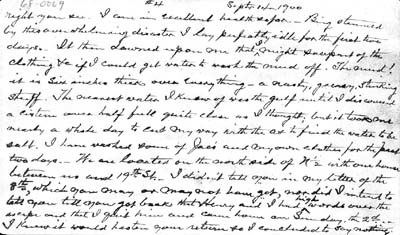 68-0069 #4 Sept. 14 - 1900
right you see. I am in excellent health so far. - Being stunned
by this overwhelming disaster I lay perfectly idle for the first two
days. It then dawned upon me that I might save part of the
clothing &c if I could get water to wash the mud off. The mud!
it is six inches thick over everything - a nasty, greasy, stinking
stuff. The nearest water I knew of was the gulf until I discovered
a cistern over half full quite close as I thought, but it took me
nearly a whole day to cut my way with the ax to find the water to be
salt. I have washed some of Joe's and my own clothes for the past
two days. - We are located on the north side of K 1/2 with one house
between us and 19th St. - I didn't tell you in my letter of the
8th, which you may or may not have got, nor did I intend to
tell you till you got back that Henry and I had high words over the
escape and that I quit him and came home on day, the 8th. -
I knew it would hasten your return so I concluded to say nothing